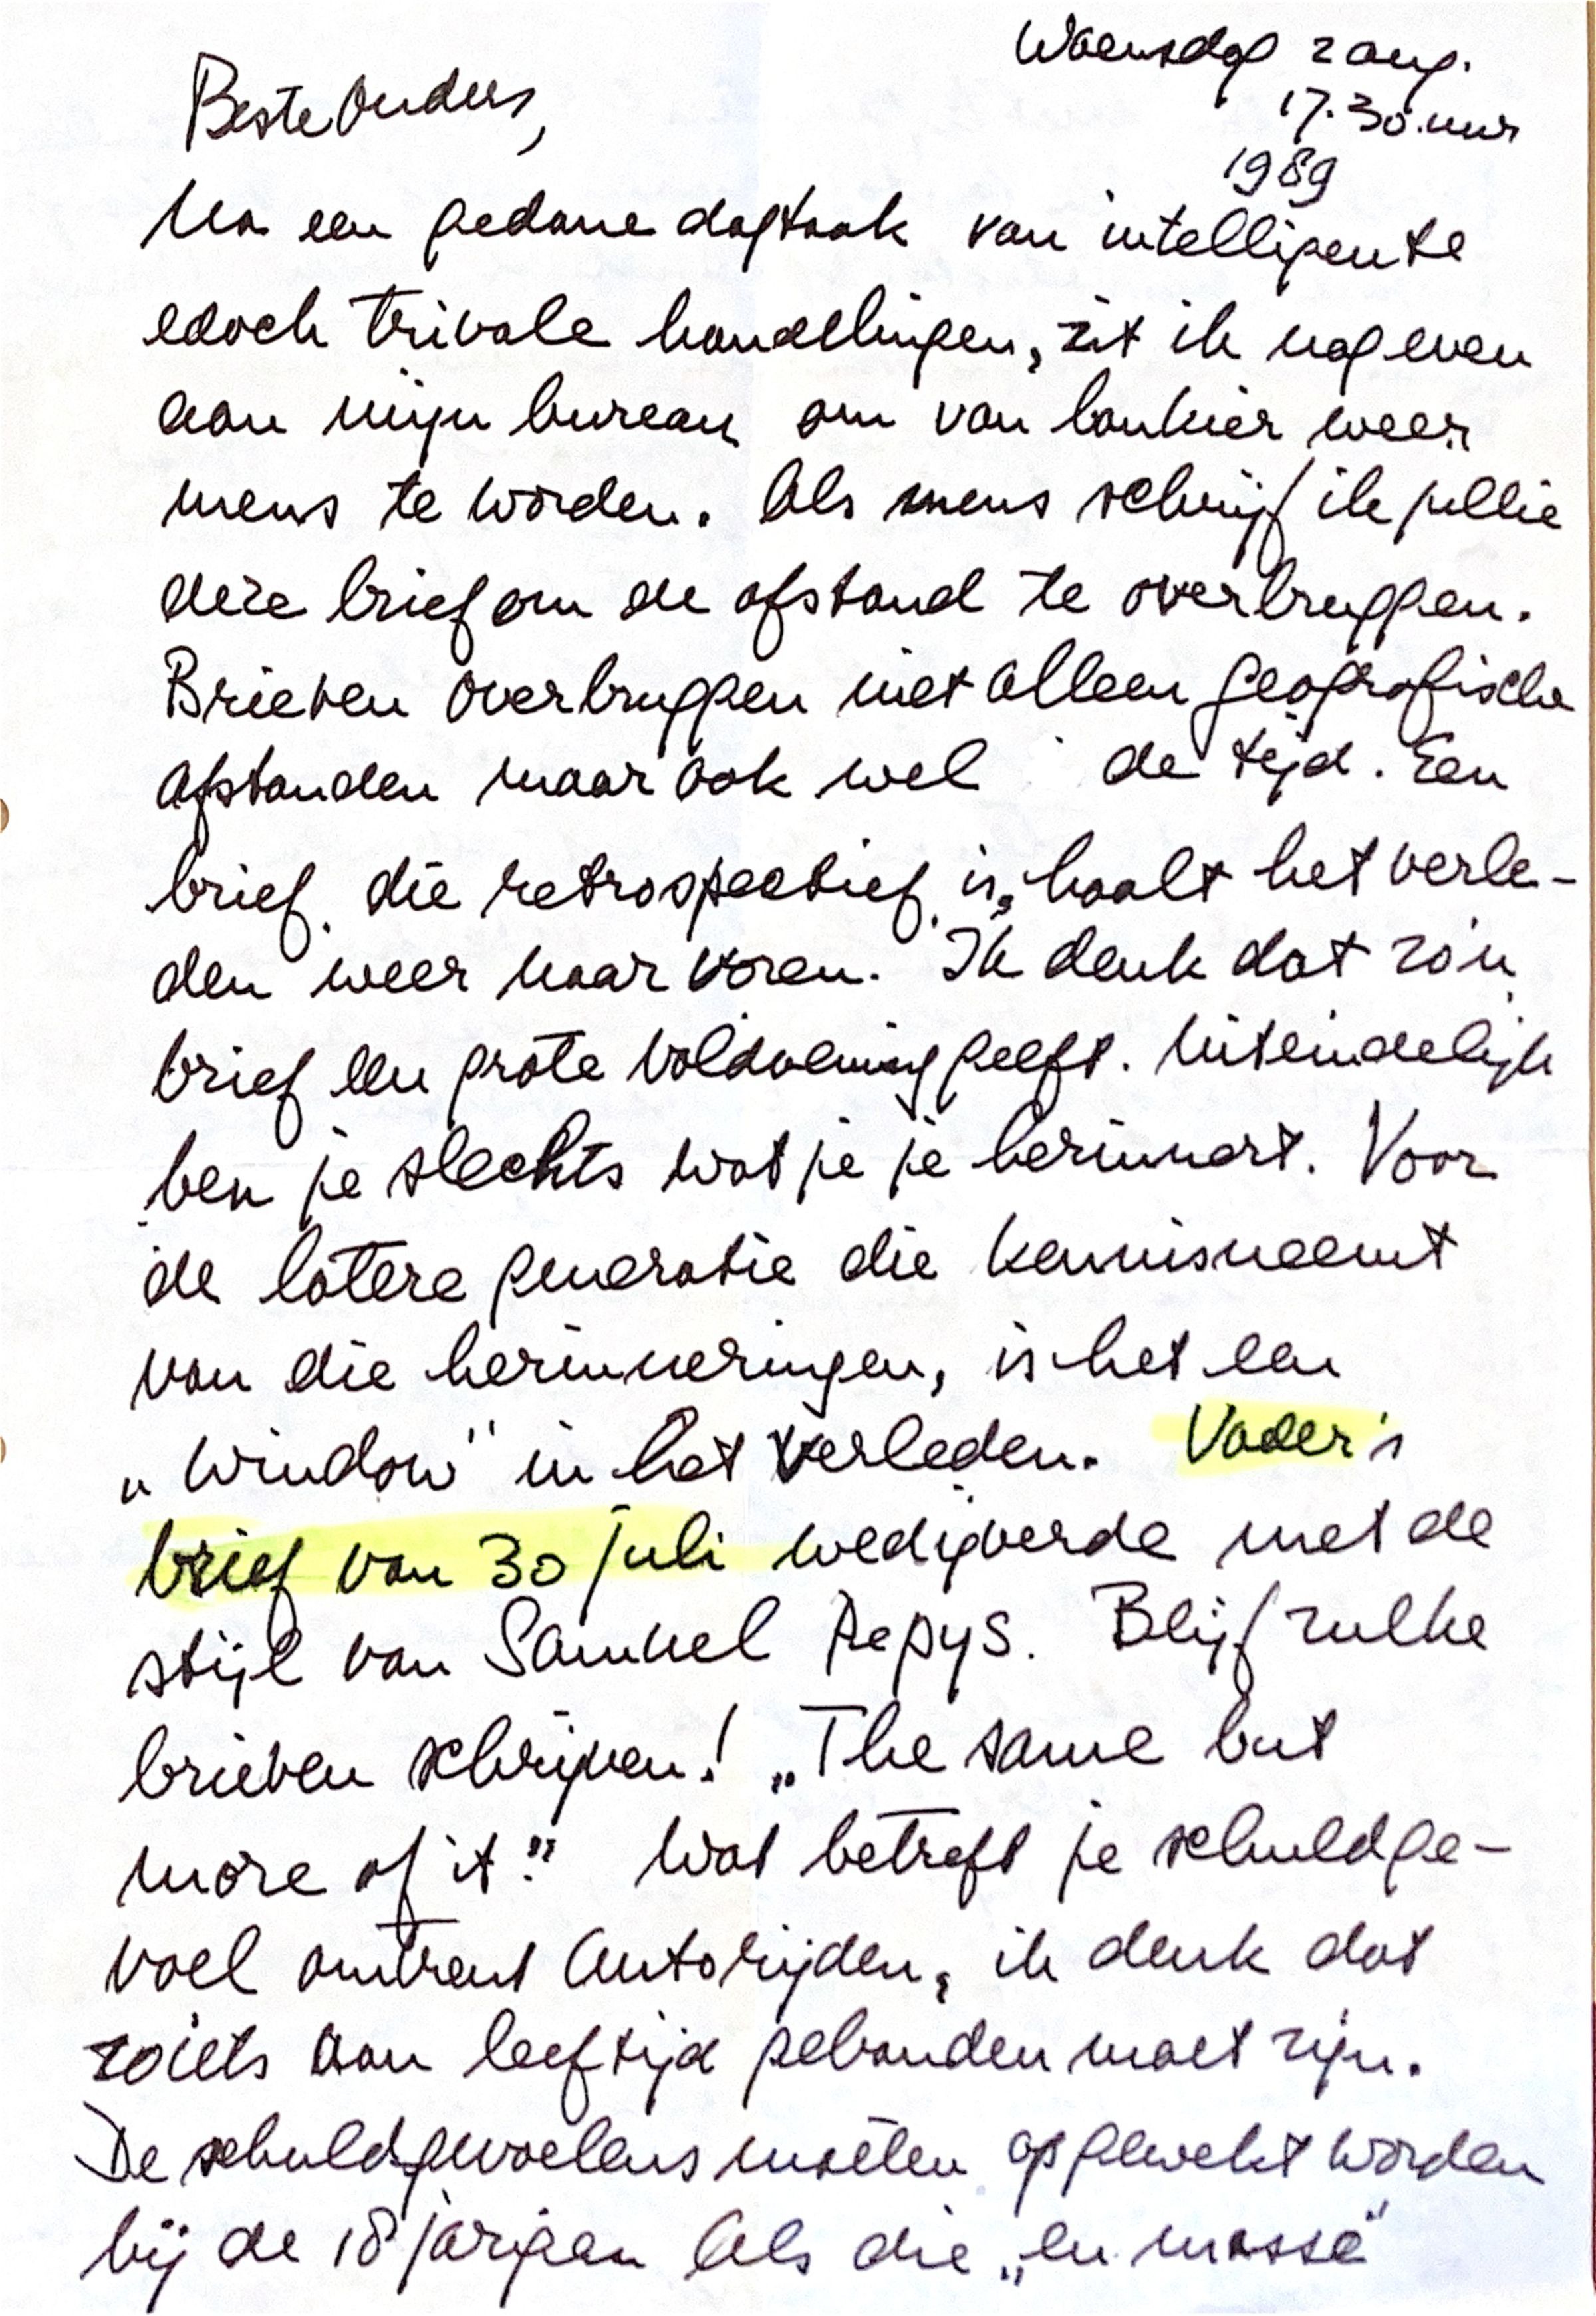 Woensdag 2 aug.
17.30 uur
1989
Beste Ouders,
Na een gedane dagtaak van intelligente
edoch trivale handelingen, zit ik nog even
aan mijn bureau om van bankier weer
mens te worden. Als mens schrijf ik jullie
deze brief om de afstand te overbruggen.
Brieven overbruggen niet alleen geografische
afstanden maar ook wel de tijd. Een
brief die retrospectief is, haalt het verle-
den weer naar voren. Ik denk dat zo'n
brief een grote voldoening geeft. Uiteindelijk
ben je slechts wat je je herinnert. Voor
de latere generatie die kennisneemt
van die herinneringen, is het een
„Window" in het verleden. Vader's
brief van 30 juli wedijverde met de
stijl van Samuel Pepys. Blijf zulke
brieven schrijven! „The same but
more of it." Wat betreft je schuldge-
voel omtrent Autorijden, ik denk dat
zoiets aan leeftijd gebonden moet zijn.
De schuldgevoelens moeten opgewekt worden
bij de 18 jarigen Als die „en masse"